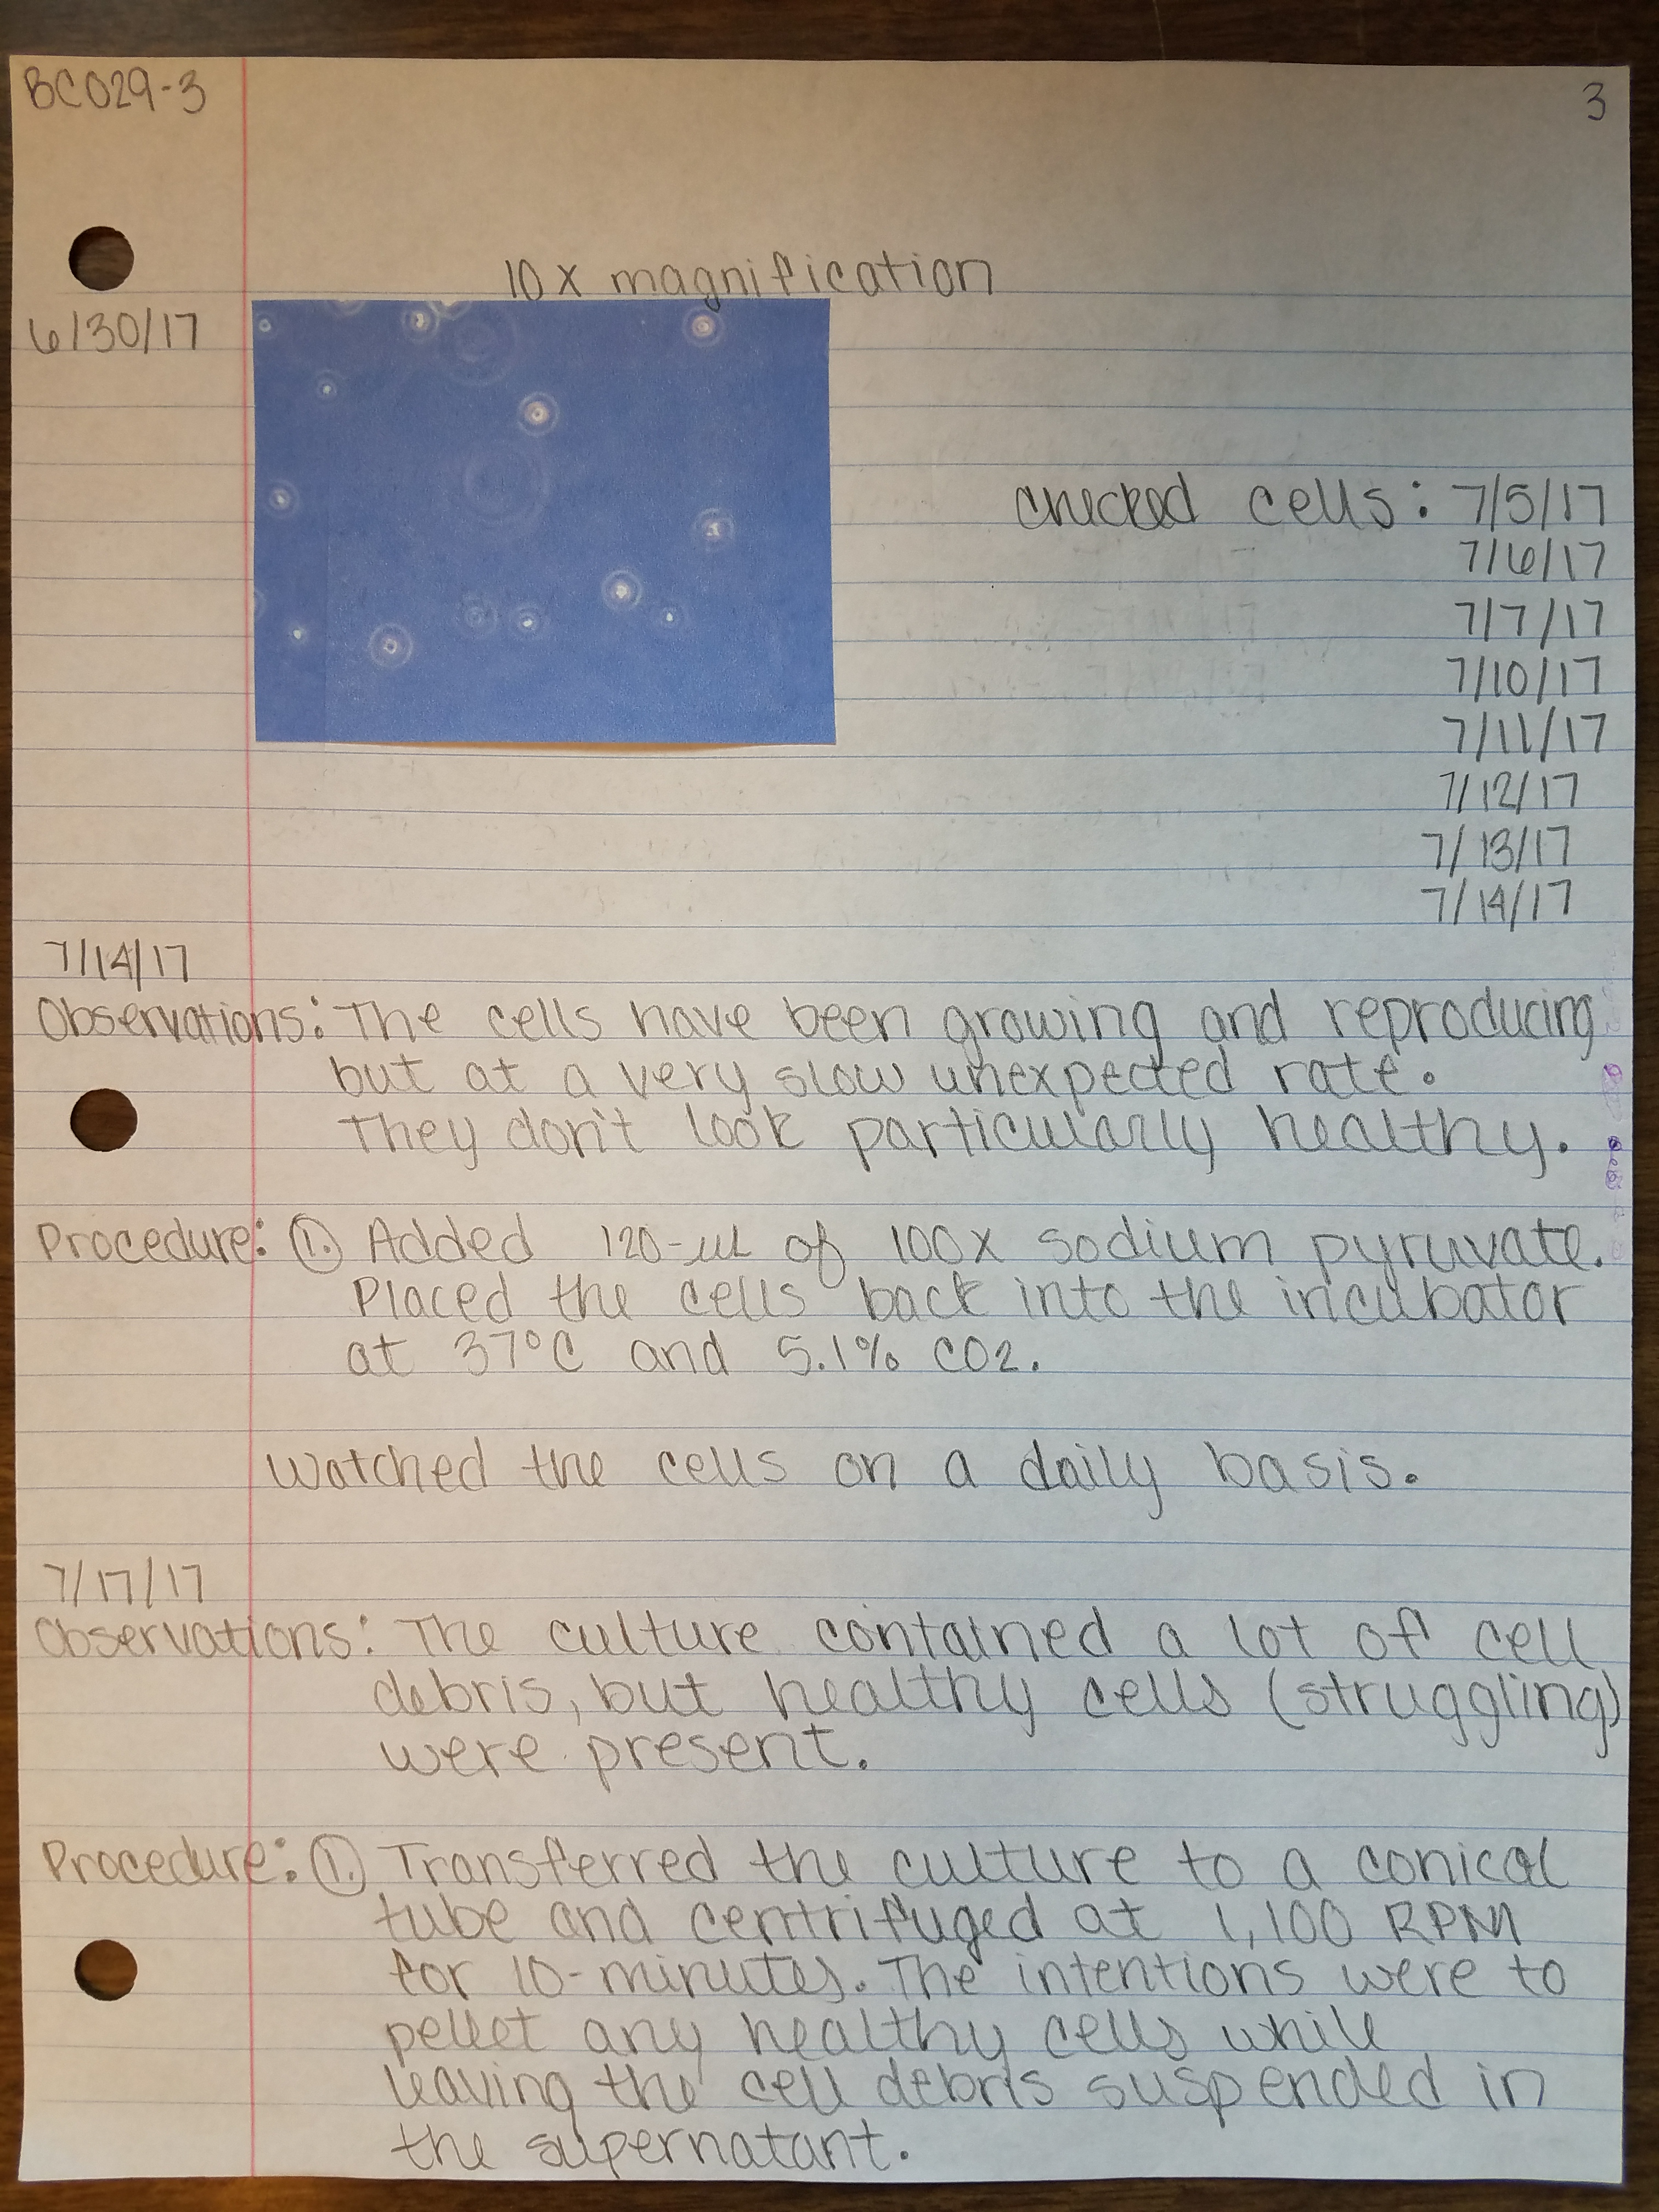 BC029-3
3
10x magnification
6/30/17
checked cells: 7/5/17
7/6/17
7/7/17
7/10/17
7/11/17
7/12/17
7/13/17
7/14/17
7/14/17
Observations: The cells have been growing and reproducing
but at a very slow unexpected rate.
They don't look particularly healthy.
Procedure: ①. Added 120-uL of 100x sodium pyruvate.
Placed the cells back into the incubator
at 37°C and 5.1% CO2.
Watched the cells on a daily basis.
7/17/17
Observations: The culture contained a lot of cell
debris, but healthy cells (struggling)
were present.
Procedure: ①. Transferred the culture to a conical
tube and centrifuged at 1,100 RPM
for 10-minutes. The intentions were to
pellet any healthy cells while
leaving the cell debris suspended in
the supernatant.